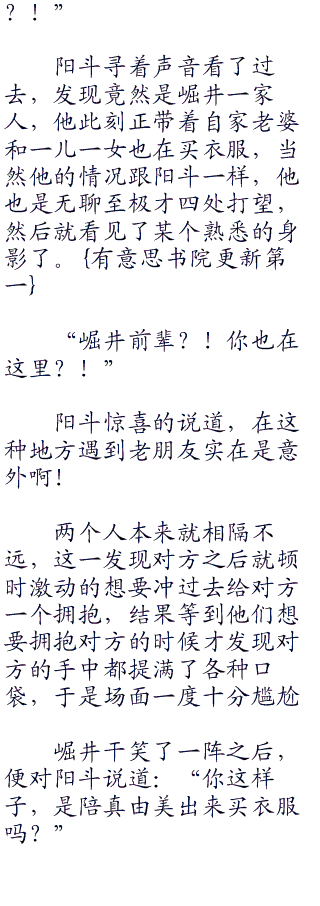 ？！”
阳斗寻着声音看了过
去，发现竟然是崛井一家
人，他此刻正带着自家老婆
和一儿一女也在买衣服，当
然他的情况跟阳斗一样，他
也是无聊至极才四处打望，
然后就看见了某个熟悉的身
影了。{有意思书院更新第
一}
“崛井前辈？！你也在
这里？！”
阳斗惊喜的说道，在这
种地方遇到老朋友实在是意
外啊！
两个人本来就相隔不
远，这一发现对方之后就顿
时激动的想要冲过去给对方
一个拥抱，结果等到他们想
要拥抱对方的时候才发现对
方的手中都提满了各种口
袋，于是场面一度十分尴尬
崛井干笑了一阵之后，
便对阳斗说道：“你这样
子，是陪真由美出来买衣服
吗？”